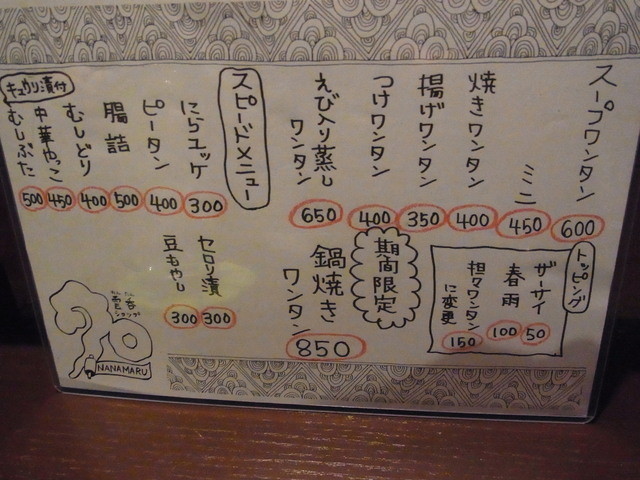 スープワンタン 600
ミニ 450
焼きワンタン 400
揚げワンタン 350
つけワンタン 400
えび入り蒸しワンタン 650
トッピング
ザーサイ 50
春雨 100
担々ワンタンに変更 150
期間限定
鍋焼きワンタン 850
スピードメニュー
にらユッケ 300
ピータン 400
腸詰 500
むしどり 400
中華やっこ 450
むしぶた 500
キュウリ漬付
セロリ漬 300
豆もやし 300
ショップ
70
NANAMARU